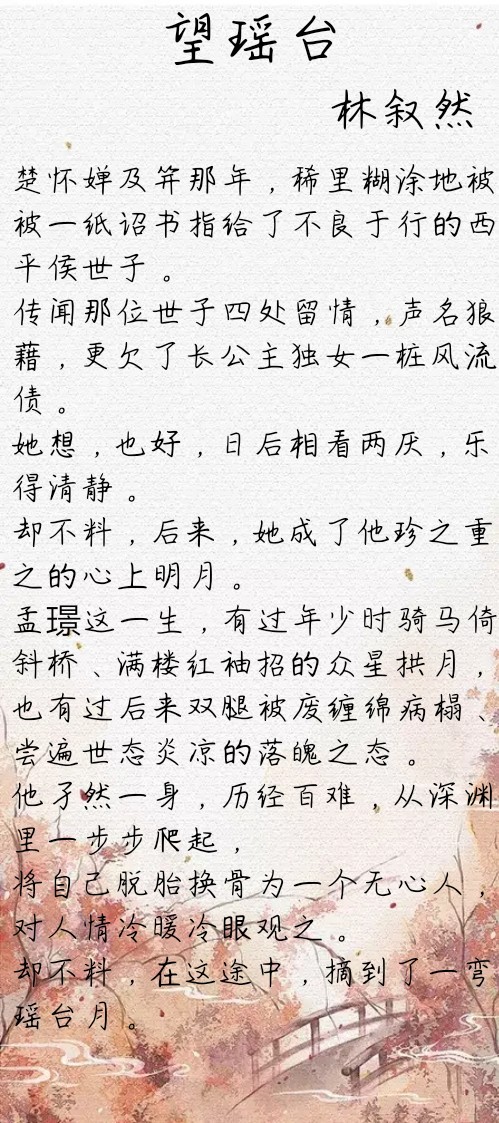 望瑶台
林叙然
楚怀婵及笄那年，稀里糊涂地被
被一纸诏书指给了不良于行的西
平侯世子。
传闻那位世子四处留情，声名狼
藉，更欠了长公主独女一桩风流
债。
她想，也好，日后相看两厌，乐
得清静。
却不料，后来，她成了他珍之重
之的心上明月。
孟璟这一生，有过年少时骑马倚
斜桥、满楼红袖招的众星拱月，
也有过后来双腿被废缠绵病榻、
尝遍世态炎凉的落魄之态。
他孑然一身，历经百难，从深渊
里一步步爬起，
将自己脱胎换骨为一个无心人，
对人情冷暖冷眼观之。
却不料，在这途中，摘到了一弯
瑶台月。